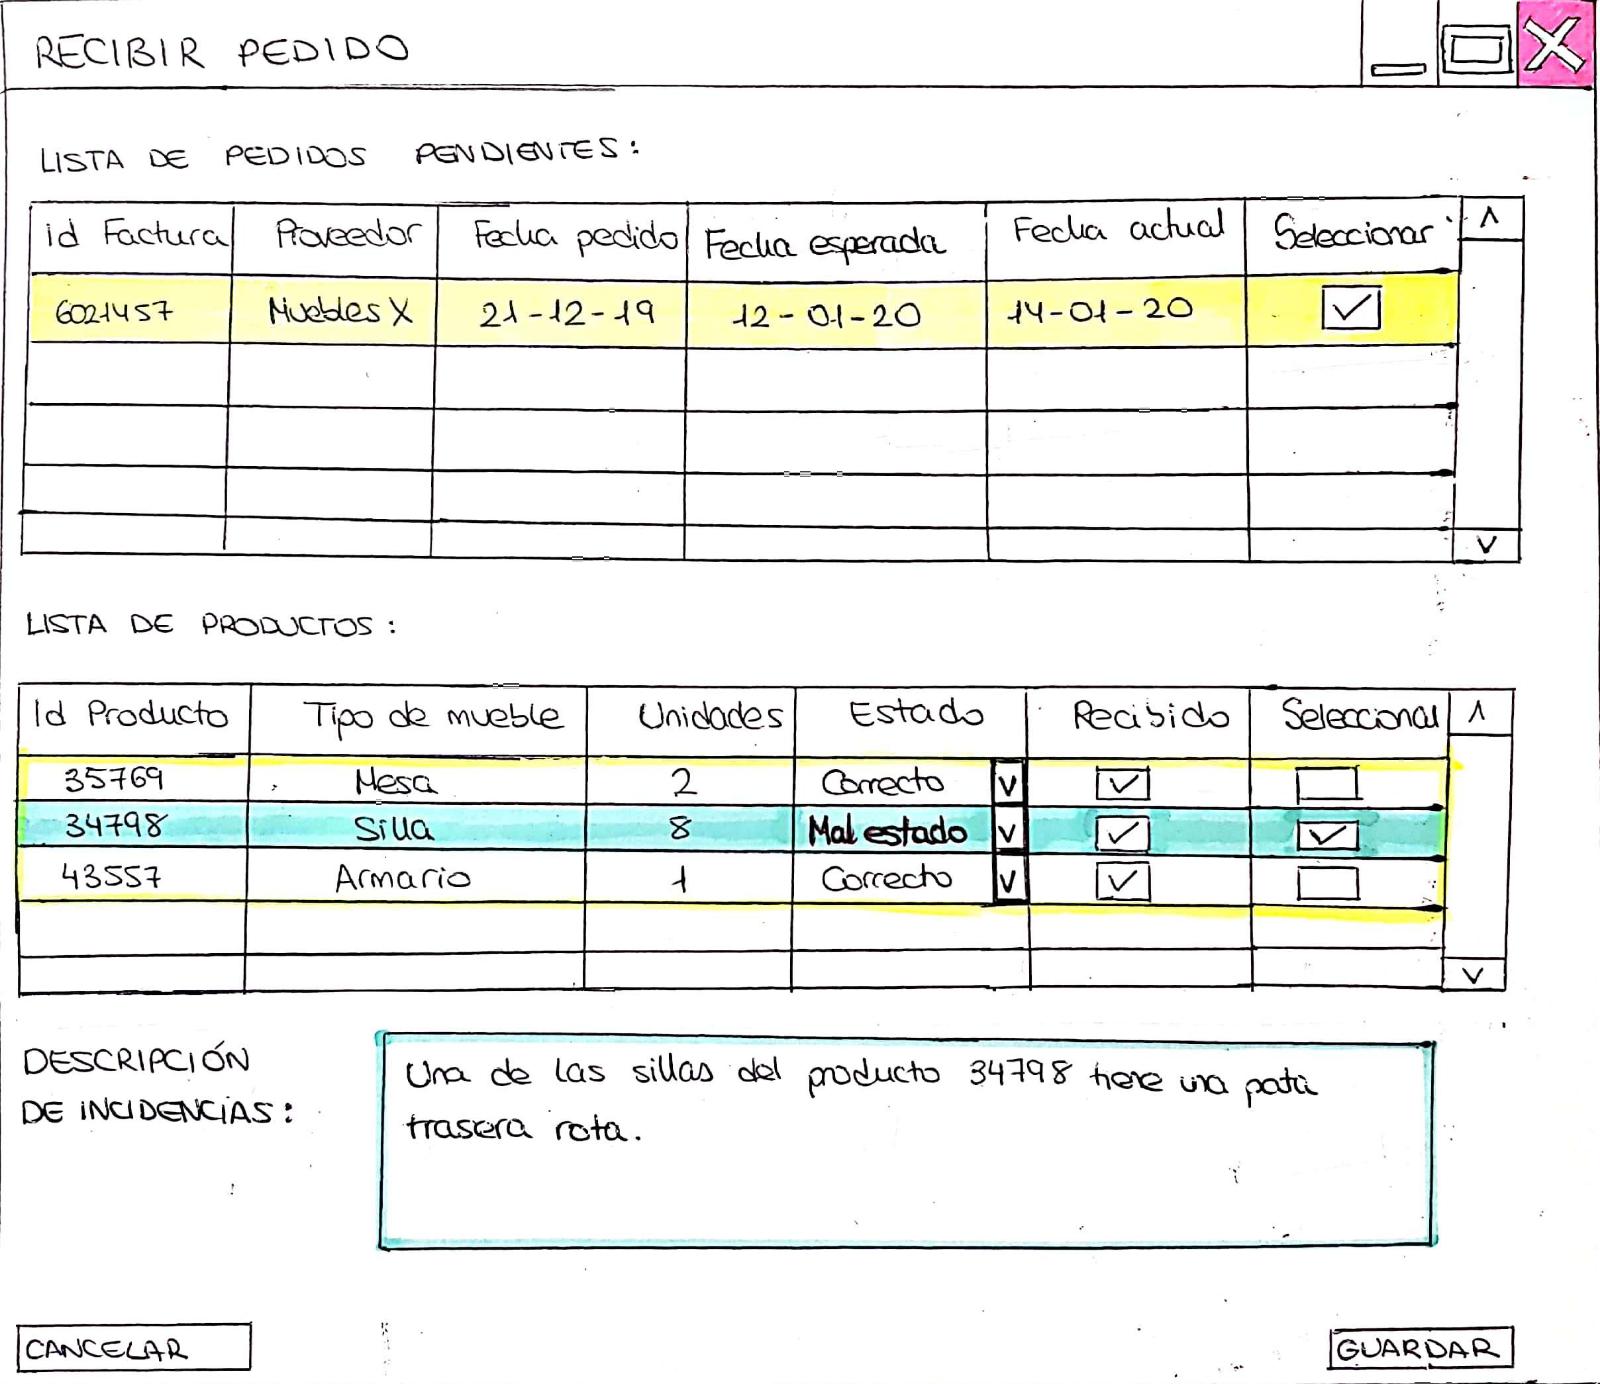 RECIBIR PEDIDO
LISTA DE PEDIDOS PENDIENTES:
id Factura Proveedor Fecha pedido Fecha esperada Fecha actual Seleccionar
6021457 Muebles X 21-12-19 12-01-20 14-01-20
LISTA DE PRODUCTOS:
Id Producto Tipo de mueble Unidades Estado Recibido Seleccionar
35769 Mesa 2 Correcto
34798 Silla 8 Mal estado
43557 Armario 1 Correcto
DESCRIPCIÓN
DE INCIDENCIAS:
Una de las sillas del producto 34798 tiene una pata
trasera rota.
CANCELAR
GUARDAR